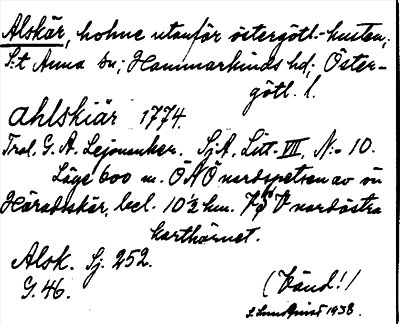 Alskär, holme utanför östergötl.-kusten,
S:t Anna sn; Hammarkinds hd; Öster-
götl. l.
Ahlskiär 1774.
Trol. G. A. Lejonanker. SjA, Litt. VII, N:o 10.
Läge 600 m. ÖNÖ nordspetsen av ön
Häradskär, bel. 10½ km. VSV nordöstra
karthörnet.
Alsk. Sj. 252.
G. 46.
(Vänd!)
1938.